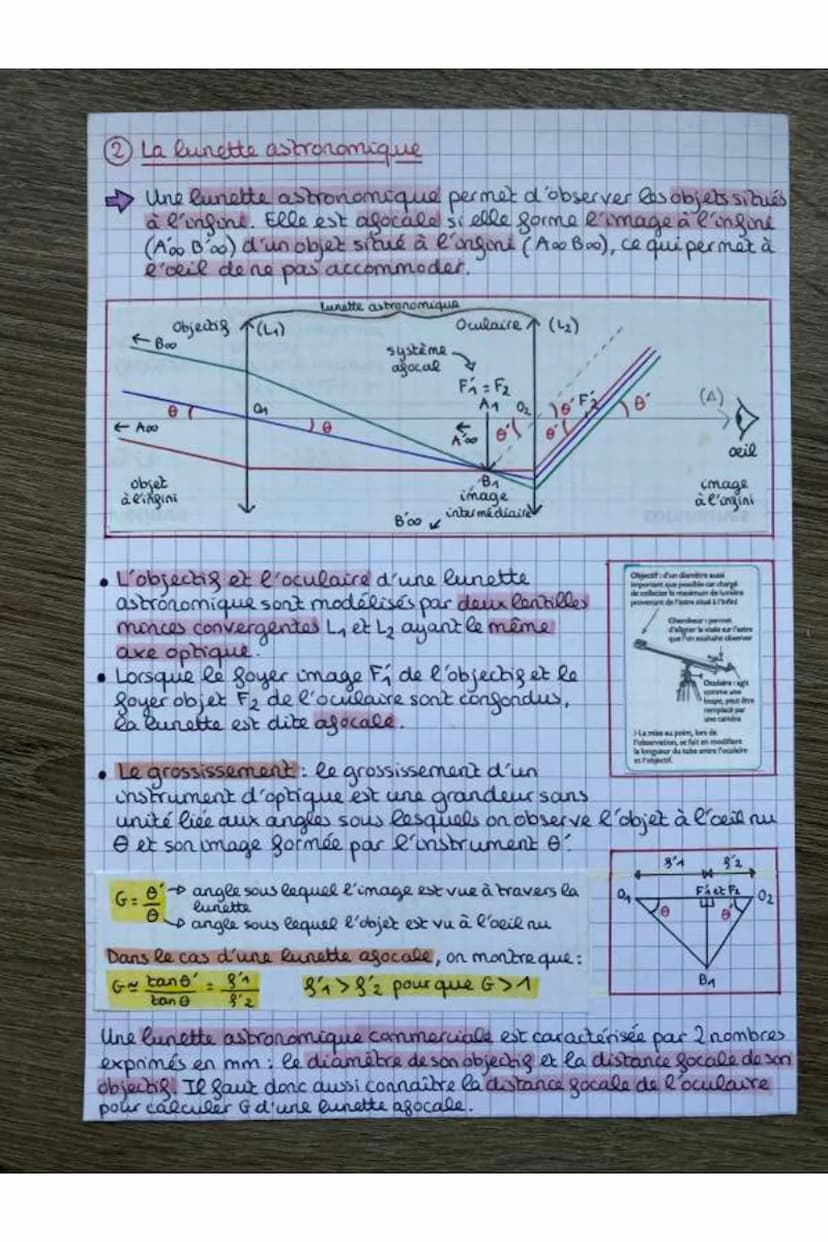 ② La lunette astronomique
➡ Une lunette astronomique permet d'observer les objets situés
à l'infini. Elle est afocale si elle forme l'image à l'infini
(A'∞ B'∞) d'un objet situé à l'infini (A∞ B∞), ce qui permet à
l'oeil de ne pas accommoder.
lunette astronomique
Objectif (L1)
Oculaire (L2)
← B∞
système
afocal
F'1 = F2
A1
O2
θ'
F'2
θ'
(Δ)
θ
O1
θ
← A∞
← A'∞
θ'
θ'
oeil
objet
à l'infini
B1
image
intermédiaire
B'∞ ↙
image
à l'infini
• L'objectif et l'oculaire d'une lunette
astronomique sont modélisés par deux lentilles
minces convergentes L1 et L2 ayant le même
axe optique.
• Lorsque le foyer image F'1 de l'objectif et le
foyer objet F2 de l'oculaire sont confondus,
la lunette est dite afocale.
Objectif : d'un diamètre aussi
important que possible car chargé
de collecter le maximum de lumière
provenant de l'astre situé à l'infini
Chercheur : permet
d'aligner la visée sur l'astre
que l'on souhaite observer
Oculaire : agit
comme une
loupe, peut être
remplacé par
une caméra
La mise au point, lors de
l'observation, se fait en modifiant
la longueur du tube entre l'oculaire
et l'objectif.
• Le grossissement : le grossissement d'un
instrument d'optique est une grandeur sans
unité liée aux angles sous lesquels on observe l'objet à l'oeil nu
θ et son image formée par l'instrument θ'.
G = θ'/θ → angle sous lequel l'image est vue à travers la
lunette
→ angle sous lequel l'objet est vu à l'oeil nu
Dans le cas d'une lunette afocale, on montre que :
G ≃ tan θ'/tan θ = f'1/f'2 f'1 > f'2 pour que G > 1
f'1 f'2
O1 F'1 et F2 O2
θ θ'
B1
Une lunette astronomique commerciale est caractérisée par 2 nombres
exprimés en mm : le diamètre de son objectif et la distance focale de son
objectif. Il faut donc aussi connaître la distance focale de l'oculaire
pour calculer G d'une lunette afocale.